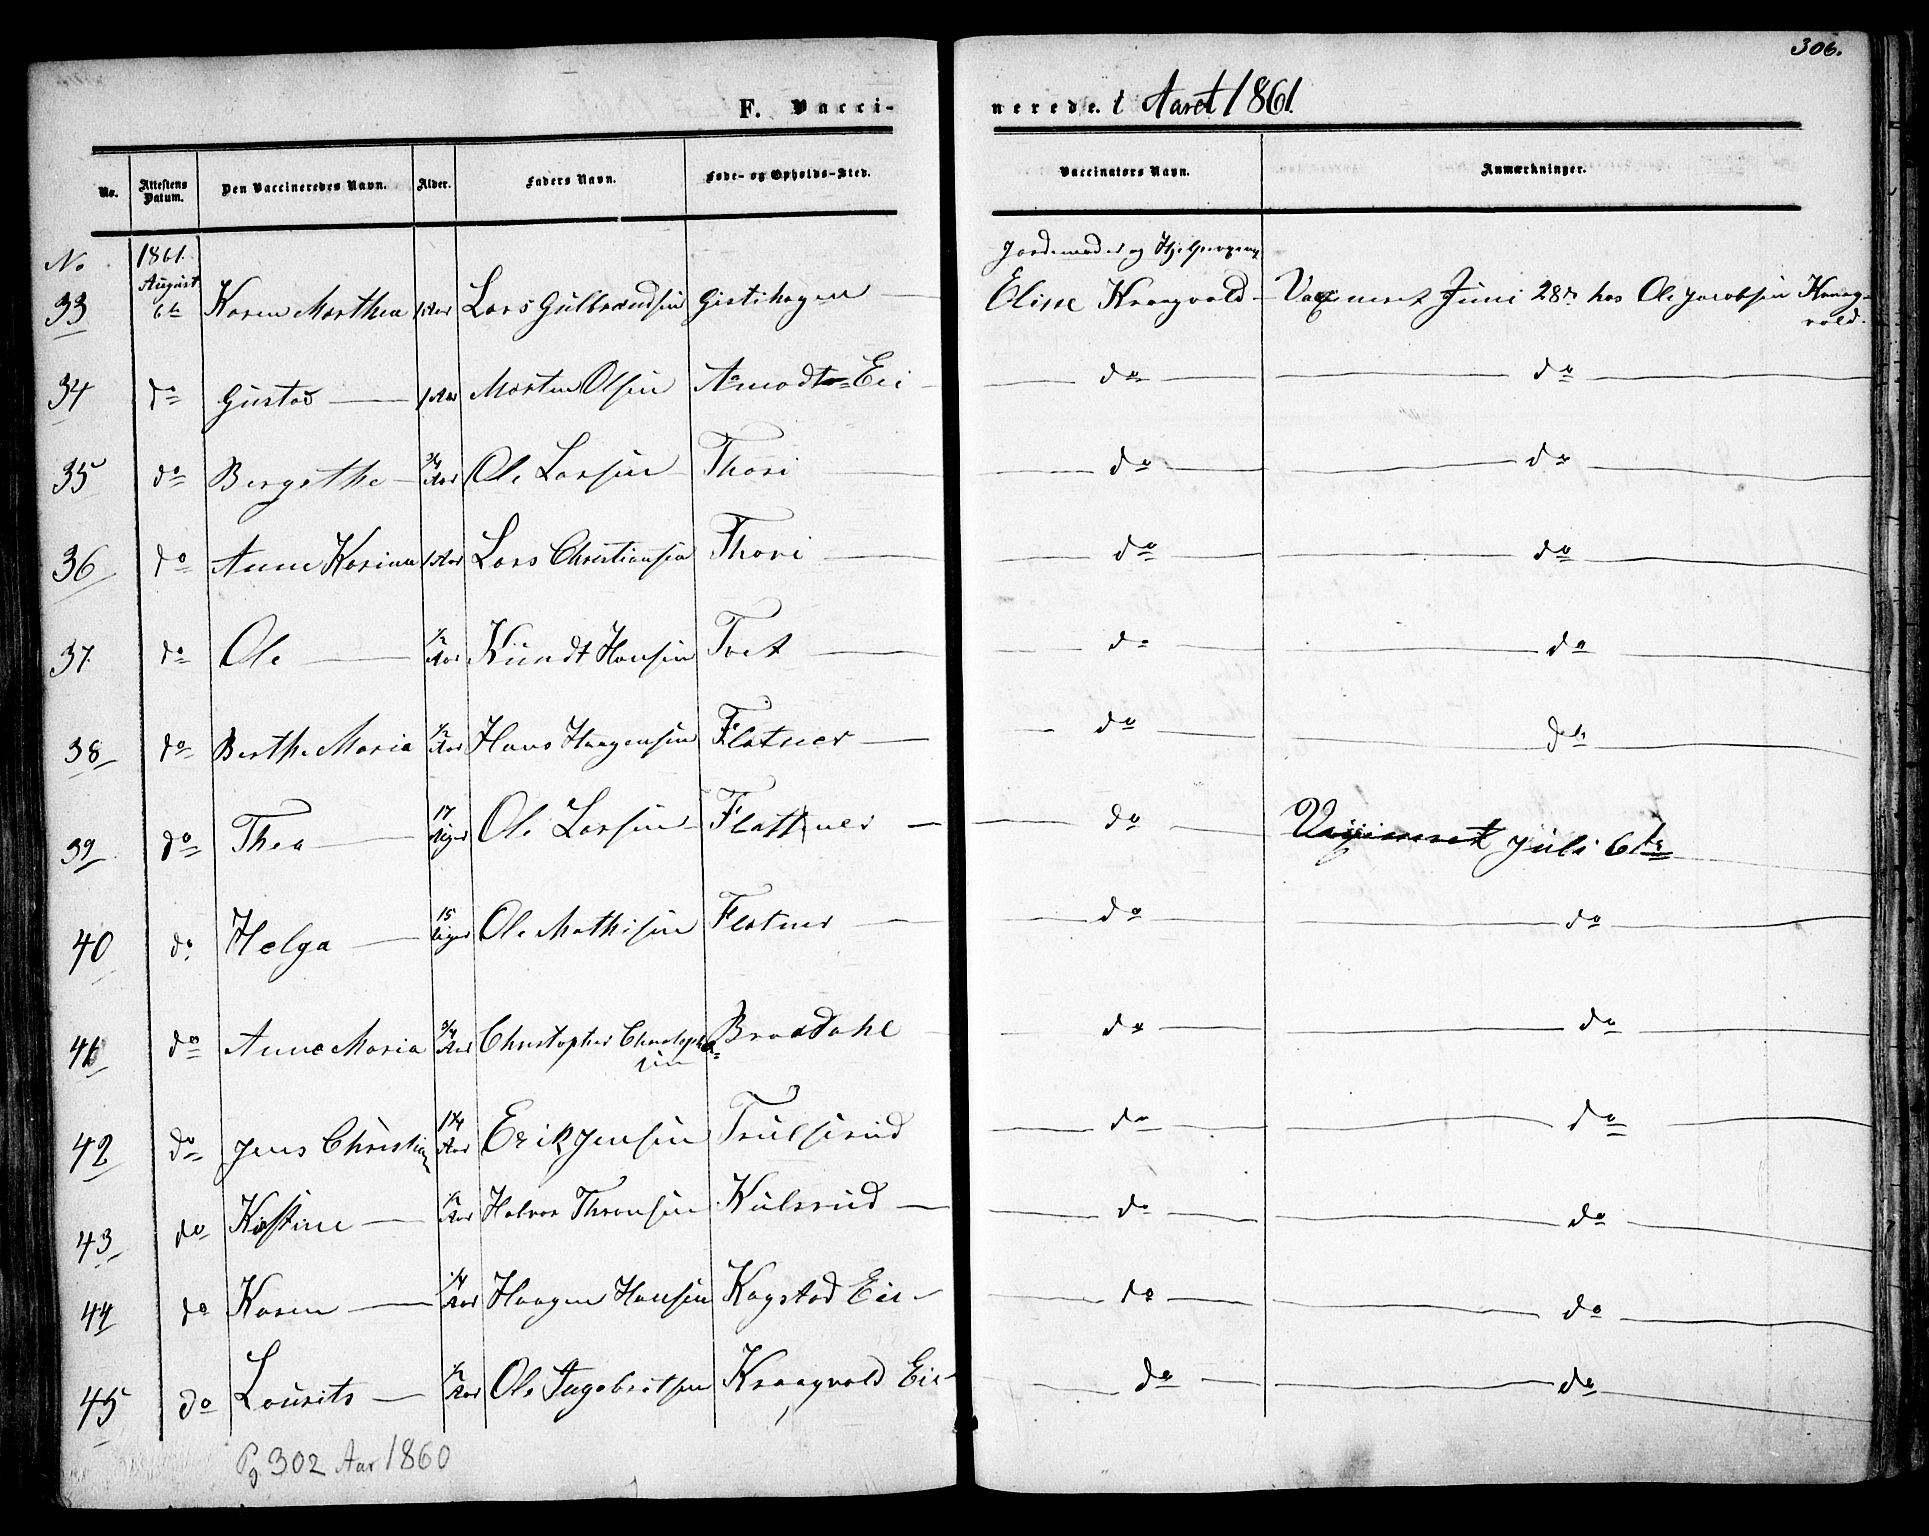 306.
F. Vaccinerede. i Aaret 1861.
No. Attestens Datum. Den Vaccineredes Navn. Alder. Faders Navn. Føde- og Opholds-Sted. Vaccinators Navn. Anmærkninger.
No 1861. August Jordemoder og
33 6te Karen Marthea 1 Aar Lars Gulbrandsen Gistihagen Eline Kraagvold Juni 28de hos Ole Jacobsen Kraagvold.
34 do Gustav 1 Aar Morten Olsen Aamodt Eie do do
35 do Bergethe 3/4 Aar Ole Larsen Thori do do
36 do Anne Karine 1 Aar Lars Christiansen Thori do do
37. do Ole 1/2 Aar Kundt Hansen Tvet do do
38 do Berthe Maria 1/2 Aar Hans Haagensen Flatner do do
39 do Thea 17 Uger Ole Larsen Flattner do Juli 6te
40 do Helga 15 Uger Ole Mathisen Flatner do do
41 do Anne Maria 3/4 Aar Christopher Christophersen Braadahl do do
42 do Jens Christian 1/4 Aar Erik Jensen Trulserud do do
43 do Kistine 1/2 Aar Halvor Thronsen Kulsrud do do
44 do Karen 1/4 Aar Haagen Hansen Kogstad Eie do do
45 do Lourits 1/2 Aar Ole Ingebretsen Kraagvold Eie do do
Pg 302 Aar 1860